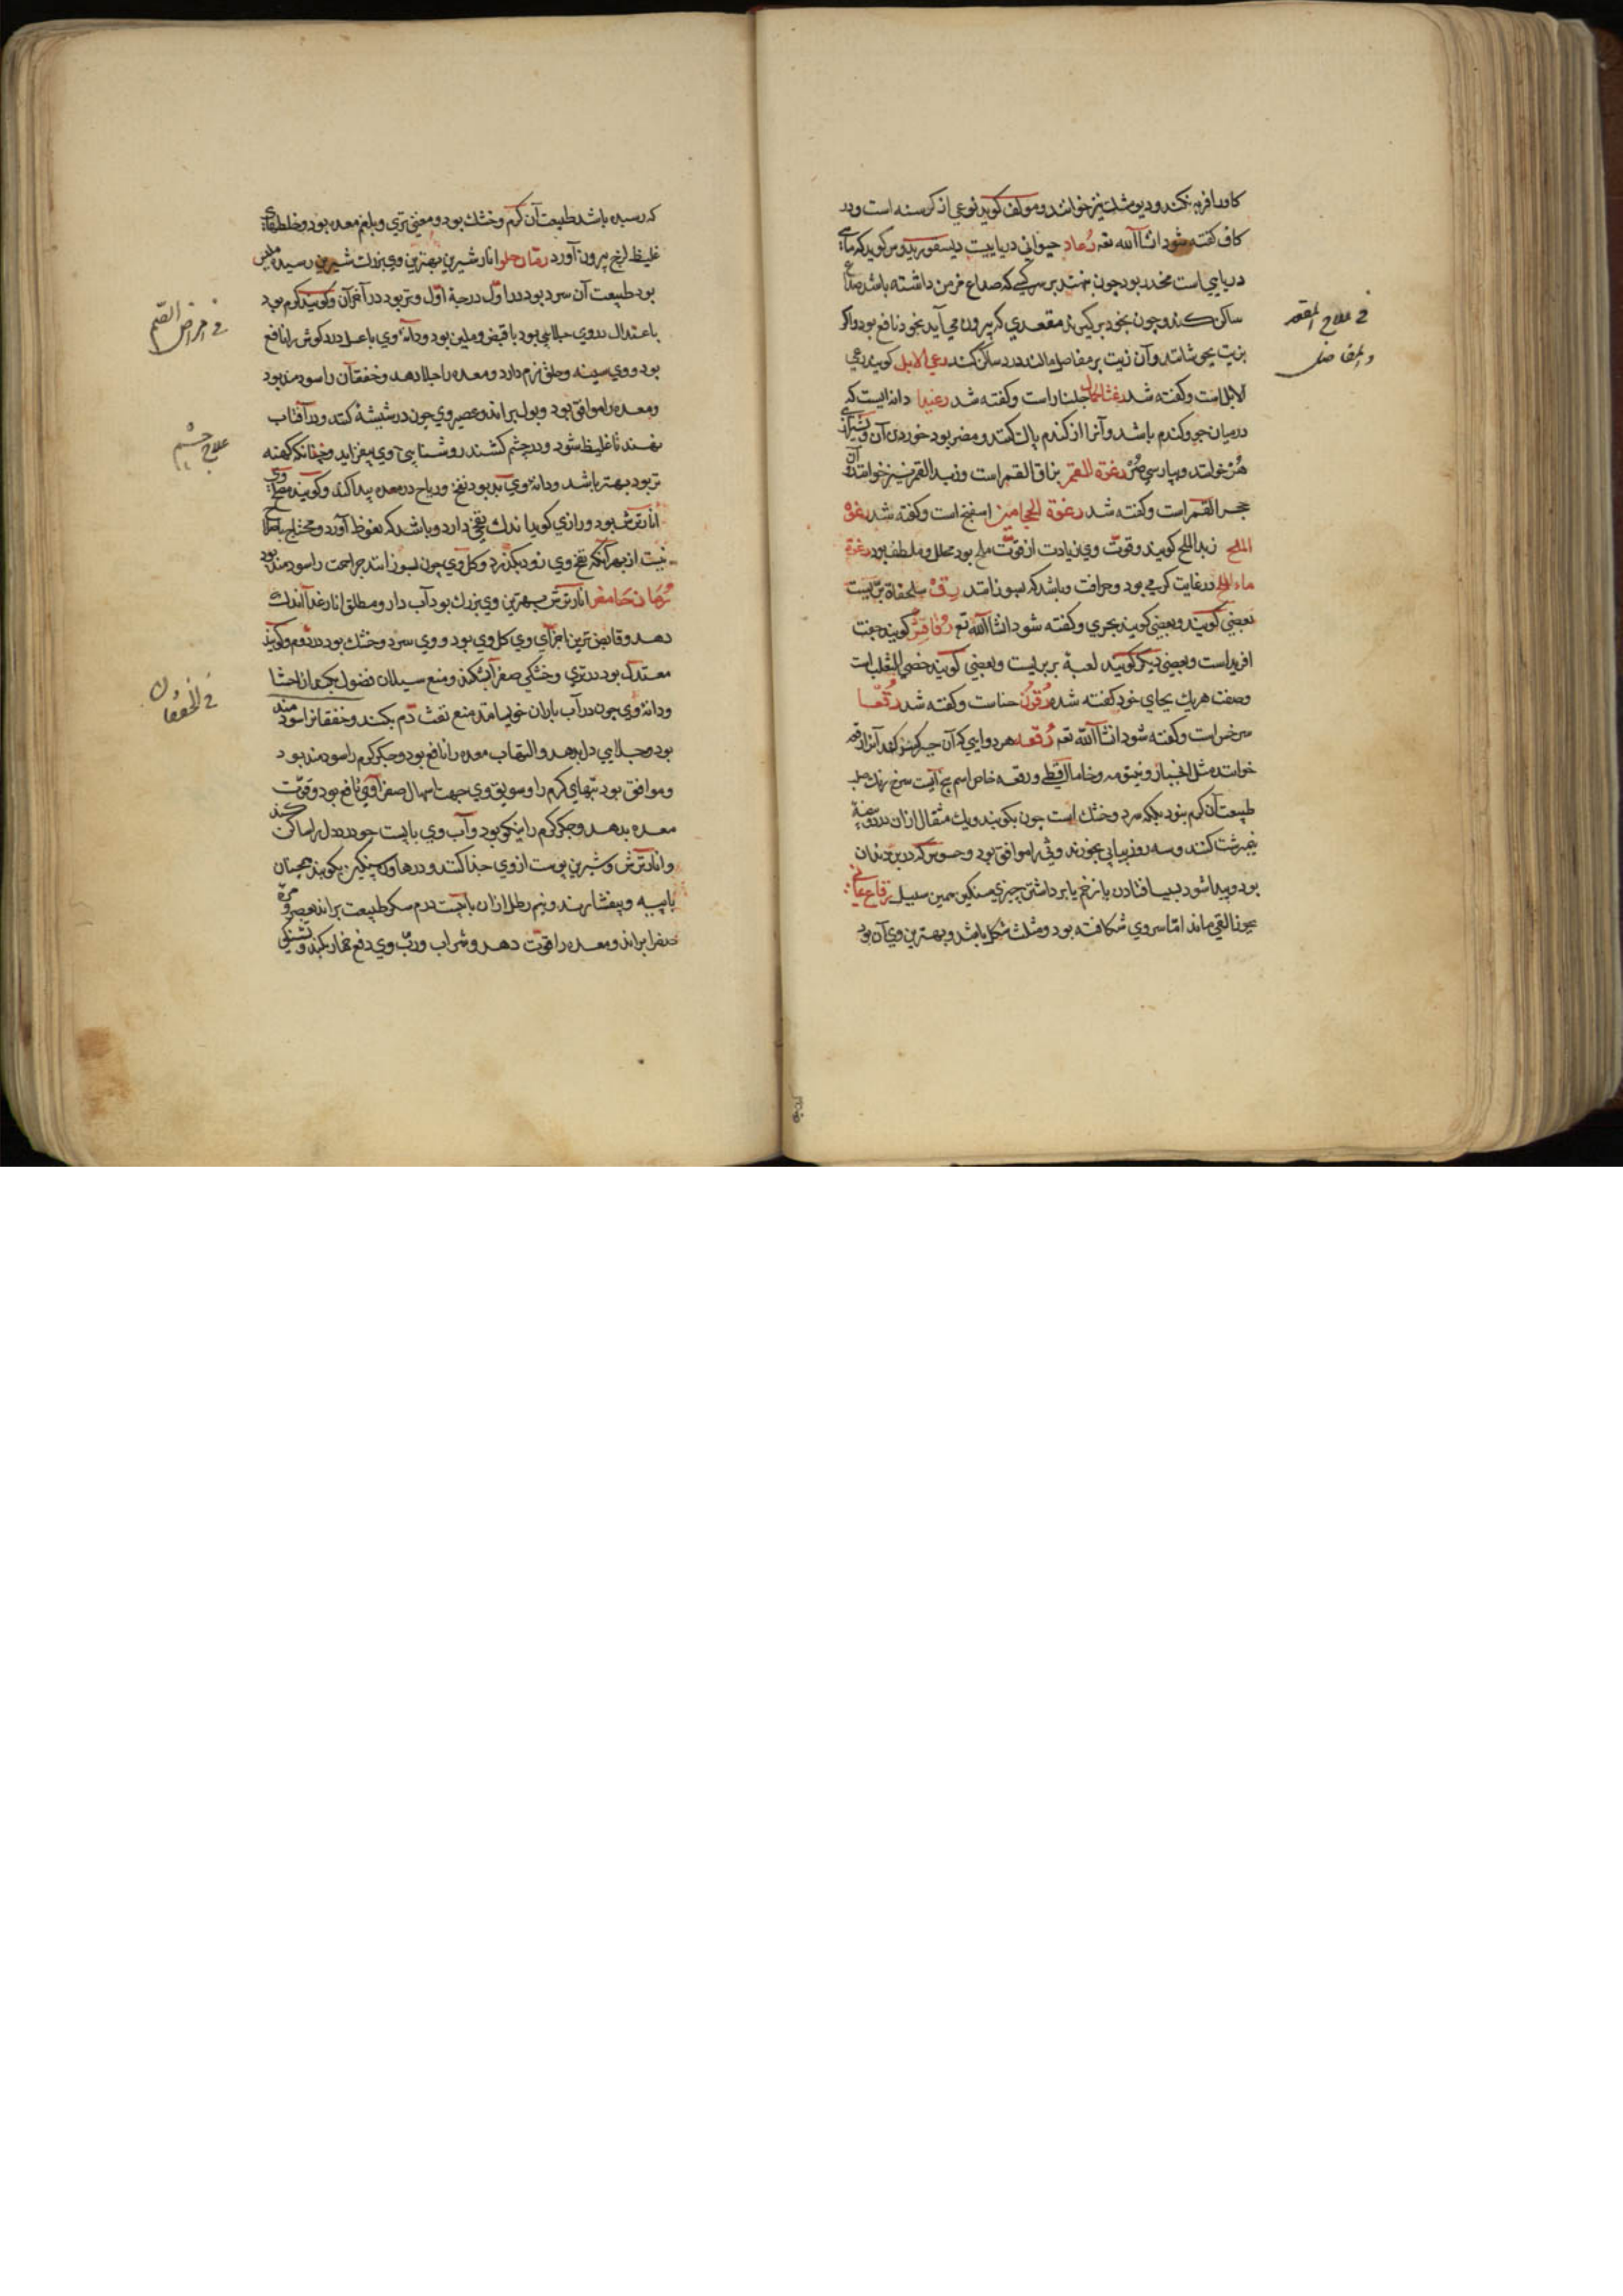 کاو را فربه کند و دیو مشنک نیز خوانند و مولف کوید نوعی از کرسنه است و در
کاف کفته شود انشاالله تعه رعاد حیوانی دریاییست دیسقوریدوس کوید که ماهی
دریایی است مخدر بود چون نهند بر سر کسی که صداع مزمن داشته باشد صداع
ساکن کند و چون بخود برکیرند مقعدی که بیرون می آید بخود نافع بود واکر
بزیت بجوشانند و آن زیت بر مفاصل مالند درد ساکن کند رعی الابل کویند رعی
الابل است و کفته شد جلنار است و کفته شد رغیدا دانه ایست که
در میان جو و کندم باشد و آنرا از کندم پاک کنند و مضر بود خوردن آن و
خوانند و بپارسی رغوة القمر بزاق القمر است و زبد القمر نیز خوانند و آن
حجر القمر است و کفته شد رغوة الحجامین اسفنج است و کفته شد رغوة
الملح زبد الملح کویند و قوت وی زیادت از قوت ملح بود محلل و ملطف بود رغوة
ماء الملح در غایت کرمی بود و حرافت و باشد که بسوزاند رق سلحفاة بریست
بعضی کویند و بعضی کویند بحری و کفته شود انشاالله تع کویند جفت
افرید است و بعضی دیکر کویند لعبة بربریست و بعضی کویند خصی الثعلب است
و صفت هر یک بجای خود کفته شده رقون حناست و کفته شد رقعا
سرخس است و کفته شود انشاالله تعه رقعه هر دوایی که آن جبر کسر کند آنرا رقعه
خوانند مثل انجبار و و رقعه خاص اسم بیخ آیست سرخ رنک
طبیعت آن کرم بنود بلکه سرد و خشک است چون بکوبند و یک مثقال ازان در دو بیضه
نیمبرشت کنند و سه روز پیاپی بخورند وثی را موافق بود و
بود و پیدا شود بسبب افتادن یا زخم یا برداشتن چیزی سنکین همین سبیل رقاع یمانی
بجوز القی ماند اما سر وی شکافته بود و مثلث شکل باشد و بهترین وی آن بود
فی علاج المقعد
والمفاصل
که رسیده باشد طبیعت آن کرم و خشک بود و معنی تری و بلغم معده بود و خلطهای
غلیظ لزج بیرون آورد رمان حلو انار شیرین بهترین وی بزرک شیرین رسیده ملیس
بود طبیعت آن سرد بود در اول درجه اول و تر بود در آخر آن و کویند کرم بود
باعتدال در وی جلایی بود با قبض و ملین بود و دانه وی با عسل درد کوش را نافع
بود و وی سینه و حلق نرم دارد و معده را جلا دهد و خفقان را سودمند بود
و معده را موافق بود و بول براند و عصیر وی چون در شیشه کنند و در آفتاب
نهند تا غلیظ شود و در چشم کشند روشنایی وی بیفزاید و چندانکه کهنه
تر بود بهتر باشد و دانه وی بد بود نفخ و ریاح در معده پیدا کند و کویند مصلح وی
انار ترش بود و رازی کوید اندک نفخی دارد و باشد که نعوظ آورد و محتاج باصلاح
نیست از بهر آنکه نفخ وی زود بکذرد و کل وی چون بسوزانند جراحت را سودمند بود
رمان حامض انار ترش بهترین وی بزرک بود آب دار و مطلق انار غذا اندک
دهد و قابض ترین اجزای وی کل وی بود و وی سرد و خشک بود در دوم و کویند
معتدل بود در تری و خشکی صفرا بشکند و منع سیلان فضول بکند از احشا
و دانه وی چون در آب باران خیسانند منع نفث دم بکند و خفقانرا سودمند
بود و جلایی دل بدهد و التهاب معده را نافع بود و جکر کرم را سودمند بود
و موافق بود تبهای کرم را و سویق وی جهت اسهال صفراوی نافع بود و قوت
معده بدهد و جکر کرم را نیکو بود و آب وی با پست جو درد دل را ساکن کند
و انار ترش و شیرین پوست از وی جدا کنند و در هاون سنکین بکوبند همچنان
با پیه و بیفشارند و نیم رطل ازان با بیست درم سکر طبیعت براند بعصر و مره
صفرا براند و معده را قوت دهد و شراب و رب وی دفع خمار بکند و تشنکی
فی امراض الصدر
علاج چشم
فی الخفقان